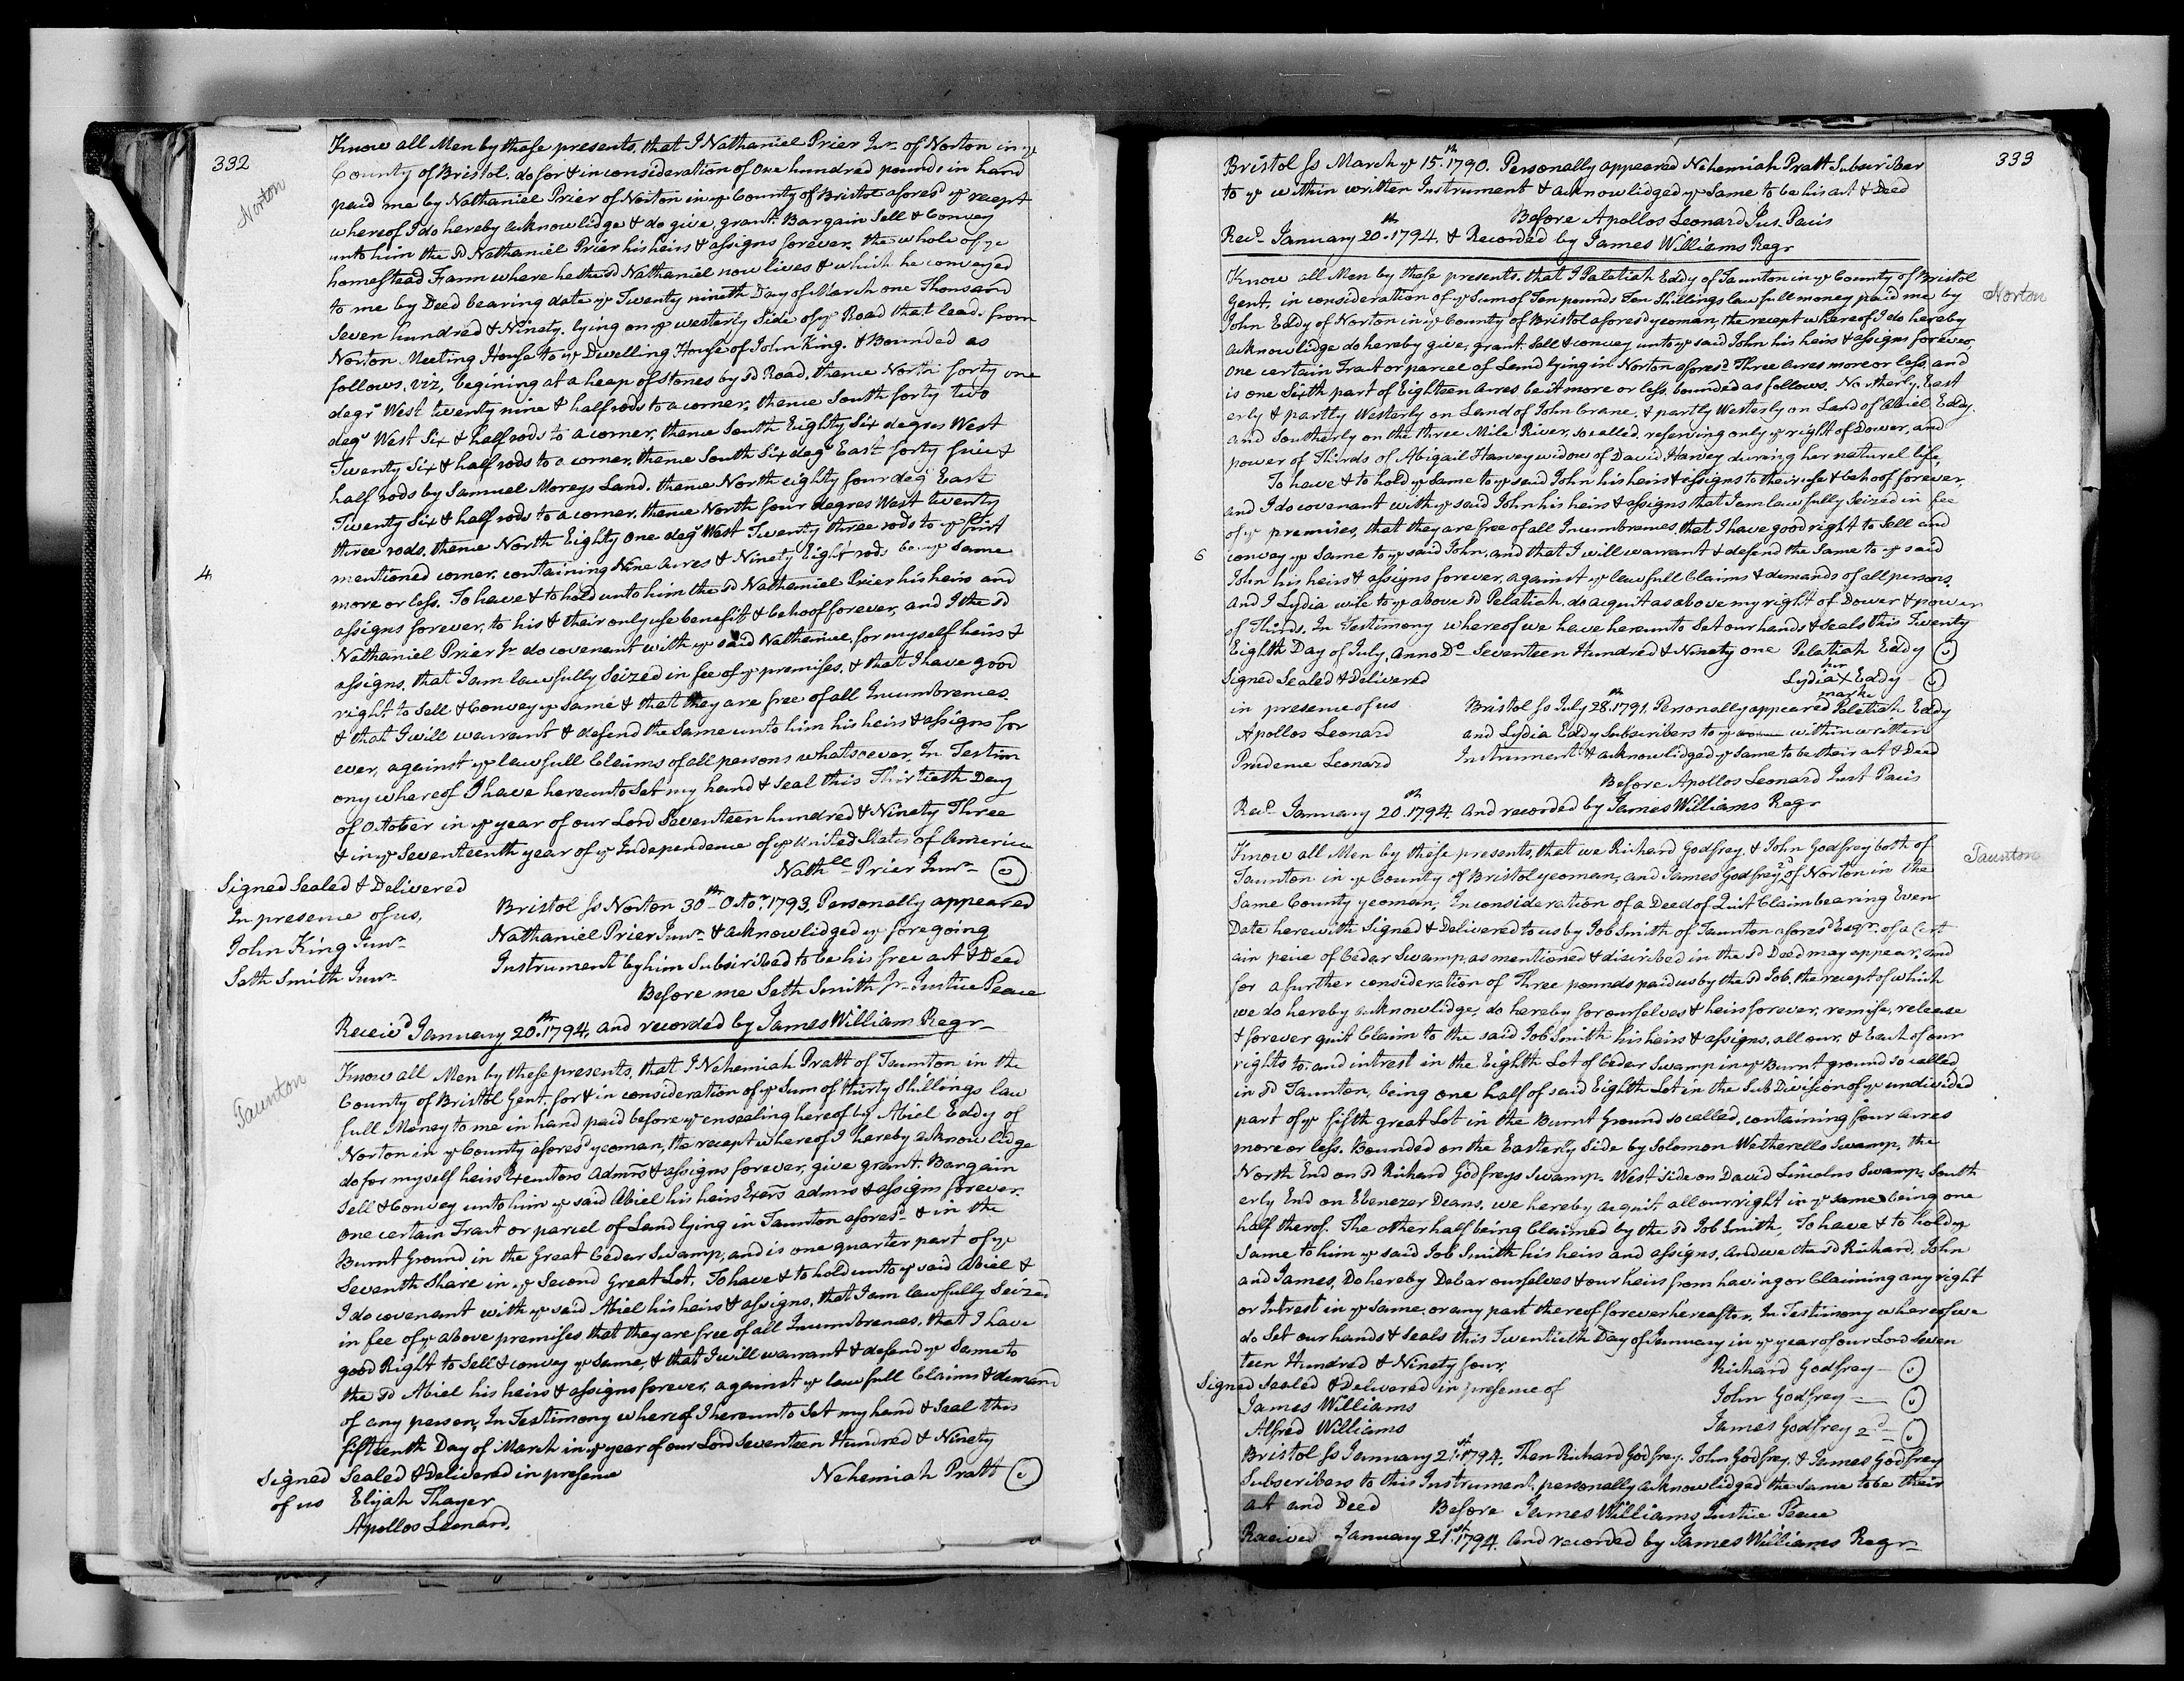 332
Norton
Know all Men by these presents, that I Nathaniel Prier Junr. of Norton in ye
County of Bristol. do for & in consideration of One hundred pounds in hand
paid me by Nathaniel Prier of Norton in ye County of Bristol aforesd. ye recept
whereof I do hereby acknowlidge & do give, grant. Bargain Sell & Convey
unto him the sd Nathaniel Prier his heirs & assigns forever. the whole of ye
homestead Farm where he the sd Nathaniel now lives & which he conveyed
to me by Deed bearing date ye Twenty nineth Day of March one Thousand
Seven hundred & Ninety. lying on ye westerly Side of ye Road that leads from
Norton Meeting House to ye Dwelling House of John King. & Bounded as
follows. viz. begining at a heap of stones by sd Road. thence North forty one
degrs West twenty nine & half rods to a corner, thence South forty two
degs West Six & half rods to a corner, thence South Eighty Six degres West
Twenty Six & half rods to a corner, thence South Six degs East forty five &
half rods by Samuel Moreys Land. thence North eighty four deg East
Twenty Six & half rods to a corner. thence North four degres West twenty
three rods. thence North Eighty one degs West Twenty three rods to ye first
mentioned corner. containing Nine acres & Ninety Eight rods be ye same
4
more or less. To have & to hold unto him the sd Nathaniel Prier his heirs and
assigns forever, to his & their only use benefit & behoof forever, and I the sd
Nathaniel Prier Jr do covenant with ye said Nathaniel, for myself heirs &
assigns. that I am lawfully Seized in fee of ye premises. & that I have good
right to Sell & Convey ye same & that they are free of all Incumbrences.
& that I will warrant & defend the same unto him his heirs & assigns for
ever, against ye lawfull Claims of all persons whatsoever. In Testim
ony whereof I have hereunto Set my hand & Seal this Thirtieth Day
of October in ye year of our Lord Seventeen hundred & Ninety Three
& in ye Seventeenth year of ye Independence of ye United States of America
Nathll Prier Junr
Signed Sealed & Delivered
In presence of us,
John King Junr
Seth Smith Junr
Bristol Ss Norton 30th Octor. 1793. Personally appeared
Nathaniel Prier Junr & acknowlidged ye foregoing
Instrument by him Subscribed to be his free act & Deed
Before me Seth Smith Jr Justice Peace
Receivd January 20th. 1794, and recorded by James William Regr
Taunton
Know all Men by these presents, that I Nehemiah Pratt of Taunton in the
County of Bristol Gent. for & in consideration of ye Sum of thirty Shillings law
full Money to me in hand paid before ye ensealing hereof by Abiel Eddy of
Norton in ye County aforesd yeoman, the recept whereof I hereby acknowlidge
do for myself heirs Exemtors Admrs & assigns forever, give grant. Bargain
Sell & Convey unto him ye said Abiel his heirs Exers admrs & assigns forever.
one certain Tract or parcel of Land lying in Taunton aforesd & in the
Burnt Ground in the Great Ceder Swamp, and is one quarter part of ye
Seventh Share in ye Second Great Lot. To have & to hold unto ye said Abiel &
I do covenant with ye said Abiel his heirs & assigns, that I am lawfully Seized
in fee of ye above premises that they are free of all Incumbrences. that I have
good Right to Sell & convey ye Same, & that I will warrant & defend ye Same to
the sd Abiel his heirs & assigns forever, against ye lawfull Claims & demand
of any person, In Testimony whereof I hereunto Set my hand & Seal this
fifteenth Day of March in ye year of our Lord Seventeen Hundred & Ninety
Signed Sealed & Delivered in presence
of us Elijah Thayer
Apollos Leonard.
Nehemiah Pratt
333
Bristol Ss March ye 15th. 1790. Personally appeared Nehemiah Pratt Subscriber
to ye within written Instrument & acknowlidged ye Same to be his act & Deed
Before Apollos Leonard Jus. Pacis
Recd January 20th. 1794. & Recorded by James Williams Regr
Norton
Know all Men by these presents. that I Pelatiah Eddy of Taunton in ye County of Bristol
Gent. in consideration of ye Sum of Ten pounds Ten Shillings lawfull money paid me by
John Eddy of Norton in ye County of Bristol aforesd yeoman, the recept whereof I do hereby
acknowlidge do hereby give, grant. Sell & convey unto ye said John his heirs & assigns forever,
one certain Tract or parcel of Land lying in Norton aforesd Three acres more or less. and
is one Sixth part of Eighteen acres be it more or less. bounded as follows. Northerly, East
erly & partly Westerly on Land of John Crane. & partly Westerly on Land of Abiel Eddy.
and Southerly on the three Mile River, so called, reserving only ye right of Dower, and
power of Thirds of Abigail Harvey widow of David Harvey during her naturel life,
To have & to hold ye same to ye said John his heirs & assigns to their use & behoof forever.
and I do covenant with ye said John his heirs & assigns that I am lawfully Seized in fee
of ye premises, that they are free of all Incumbrances. that I have good right to Sell and
6
convey ye Same to ye said John, and that I will warrant & defend the Same to ye said
John his heirs & assigns forever, against ye lawfull Claims & demands of all persons.
And I Lydia wife to ye above sd Pelatiah. do acquit as above my right of Dower & power
of Thirds. In Testimony whereof we have hereunto Set our hands & seals this Twenty
Eighth Day of July, anno Do Seventeen Hundred & Ninety one Pelatiah Eddy
Signed Sealed & Delivered
her
Lydia X Eddy
mark
in presence of us
Apollos Leonard
Prudence Leonard
Bristol Ss July 28th. 1791. Personally appeared Pelatiah Eddy
and Lydia Eddy Subscribers to ye within written
Instrument & acknowlidged ye Same to be their act & Deed
Before Apollos Leonard Just Pacis
Recd January 20th. 1794. and recorded by James Williams Regr
Taunton
Know all Men by these presents, that we Richard Godfrey & John Godfrey both of
Taunton in ye County of Bristol yeoman, and James Godfrey 2d of Norton in the
Same County yeoman, In consideration of a Deed of Quit Claim bearing Even
Date herewith Signed & Delivered to us by Job Smith of Taunton aforesd Esqr. of a Cert
ain peice of Cedar Swamp, as mentioned & discribed in the sd Deed may appear, and
for a further consideration of Three pounds paid us by the sd Job. the recept of which
we do hereby acknowlidge, do hereby for ourselves & heirs forever, remise, release
& forever quit Claim to the said Job Smith his heirs & assigns, all our, & Each of our
rights to. and intrest in the Eighth Lot of Ceder Swamp in ye Burnt ground so called
in sd Taunton, being one half of said Eighth Lot in the Sub Division of ye undivided
part of ye fifth great Lot in the Burnt Ground so called, containing four acres
more or less. Bounded on the Easterly Side by Solomon Wetherells Swamp, the
North End on sd Richard Godfreys Swamp. West Side on David Lincolns Swamp. South
erly End on Ebenezer Deans, we hereby acquit all our right in ye same being one
half therof. The other half being Claimed by the sd Job Smith, To have & to hold ye
Same to him ye said Job Smith his heirs and assigns, and we the sd Richard, John
and James, Do hereby Debar ourselves & our heirs from having or Claiming any right
or Intrest in ye Same, or any part thereof forever hereafter, In Testimony whereof we
do Set our hands & Seals this Twentieth Day of January in ye year of our Lord Seven
teen Hundred & Ninety four.
Richard Godfrey
Signed Sealed & Delivered in presence of
John Godfrey
James Williams
James Godfrey 2d
Alfred Williams
Bristol Ss January 21st. 1794. Then Richard Godfrey. John Godfrey. & James Godfrey
Subscribers to this Instrument, personally acknowlidged the same to be their
act and Deed Before James Williams Justice Peace
Received January 21st. 1794. and recorded by James Williams Regr